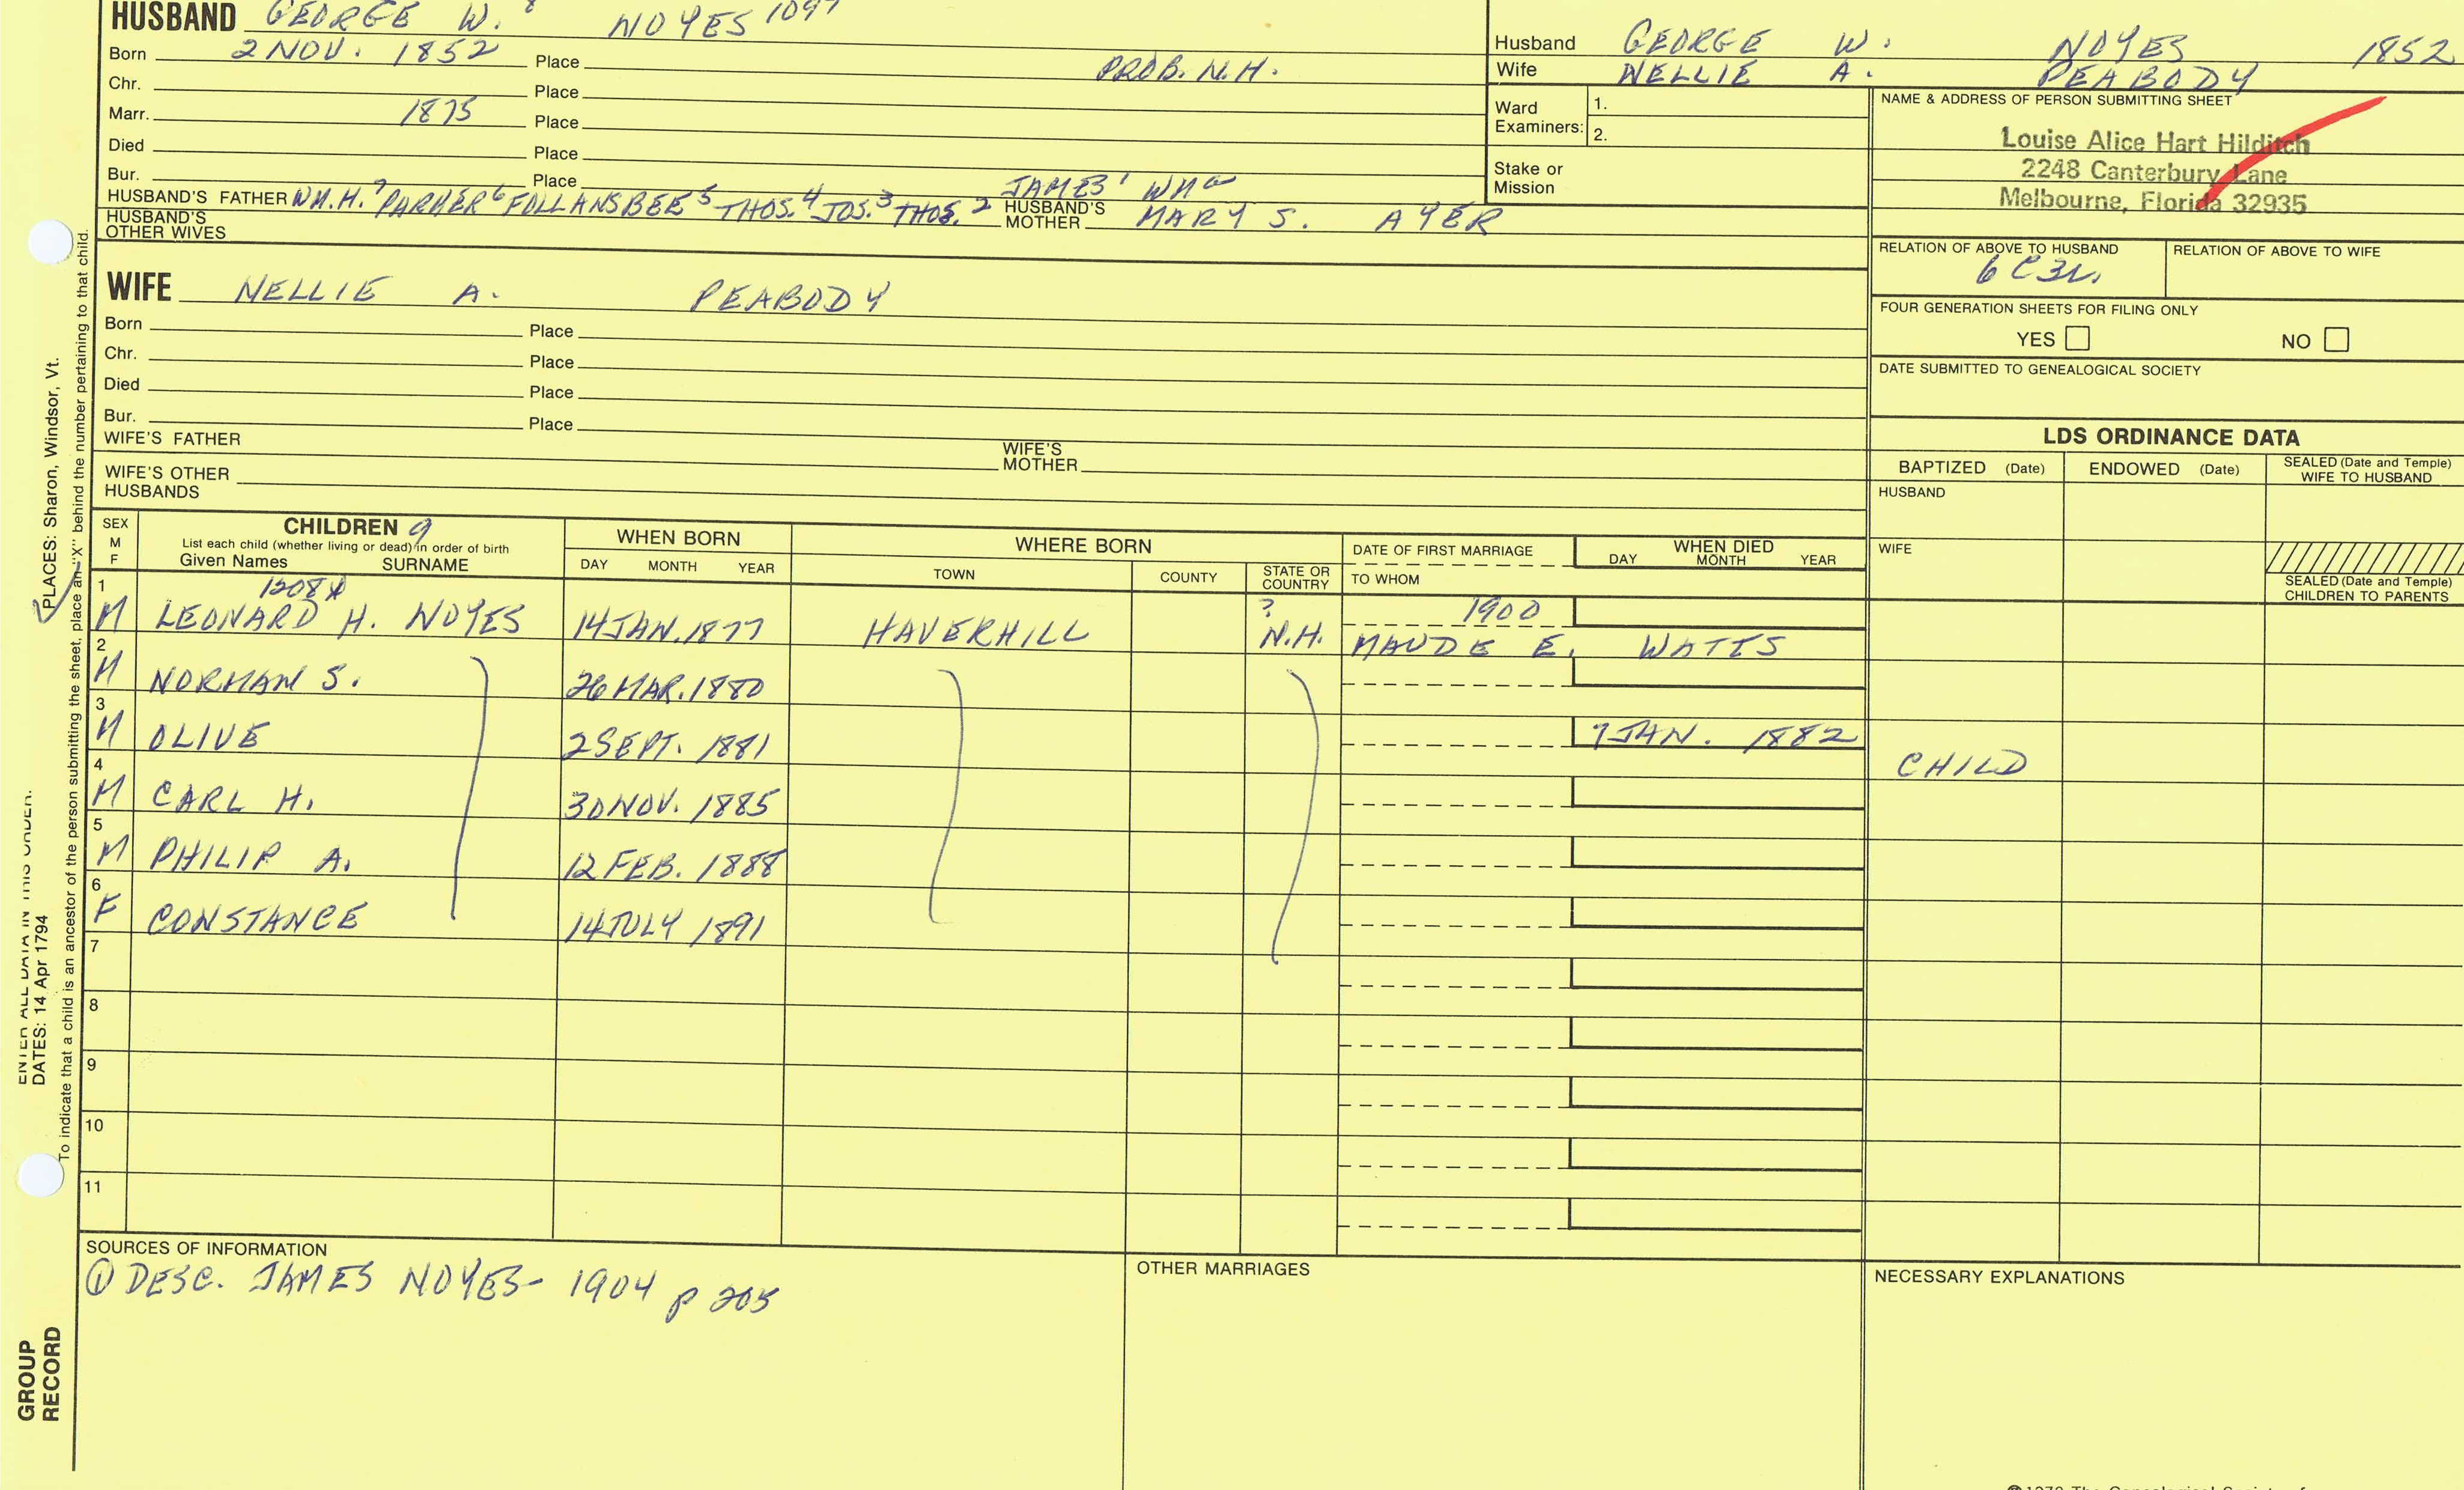 HUSBAND GEORGE W. 8 NOYES 1097
Born 2 NOV. 1852 Place PROB. N.H.
Chr. Place
Marr. 1875 Place
Died Place
Bur. Place
HUSBAND'S FATHER WM. H. 7 PARKER 6 FOLLANSBEE 5 THOS. 4 JOS. 3 THOS. 2 JAMES 1 WM a HUSBAND'S MOTHER MARY S. AYER
HUSBAND'S OTHER WIVES
WIFE NELLIE A. PEABODY
Born Place
Chr. Place
Died Place
Bur. Place
WIFE'S FATHER WIFE'S MOTHER
WIFE'S OTHER HUSBANDS
Husband GEORGE W. NOYES 1852
Wife NELLIE A. PEABODY
Ward Examiners: 1.
2.
Stake or Mission
NAME & ADDRESS OF PERSON SUBMITTING SHEET
Louise Alice Hart Hilditch
2248 Canterbury Lane
Melbourne, Florida 32935
RELATION OF ABOVE TO HUSBAND RELATION OF ABOVE TO WIFE
6 C 3 R.
FOUR GENERATION SHEETS FOR FILING ONLY
YES NO
DATE SUBMITTED TO GENEALOGICAL SOCIETY
LDS ORDINANCE DATA
BAPTIZED (Date) ENDOWED (Date) SEALED (Date and Temple) WIFE TO HUSBAND
HUSBAND
WIFE
SEALED (Date and Temple) CHILDREN TO PARENTS
SEX M F CHILDREN 9 WHEN BORN WHERE BORN DATE OF FIRST MARRIAGE WHEN DIED
List each child (whether living or dead) in order of birth
Given Names SURNAME DAY MONTH YEAR TOWN COUNTY STATE OR COUNTRY TO WHOM DAY MONTH YEAR
1 1208 ? 1900
M LEONARD H. NOYES 14 JAN. 1877 HAVERHILL N.H. MAUDE E. WATTS
2
M NORMAN S. 26 MAR. 1880
3
M OLIVE 2 SEPT. 1881 7 JAN. 1882 CHILD
4
M CARL H. 30 NOV. 1885
5
M PHILIP A. 12 FEB. 1888
6
F CONSTANCE 14 JULY 1891
7
8
9
10
11
SOURCES OF INFORMATION
① DESC. JAMES NOYES- 1904 p 205
OTHER MARRIAGES
NECESSARY EXPLANATIONS
GROUP RECORD
ENTER ALL DATA IN THIS ORDER:
DATES: 14 Apr 1794
PLACES: Sharon, Windsor, Vt.
To indicate that a child is an ancestor of the person submitting the sheet, place an "X" behind the number pertaining to that child.